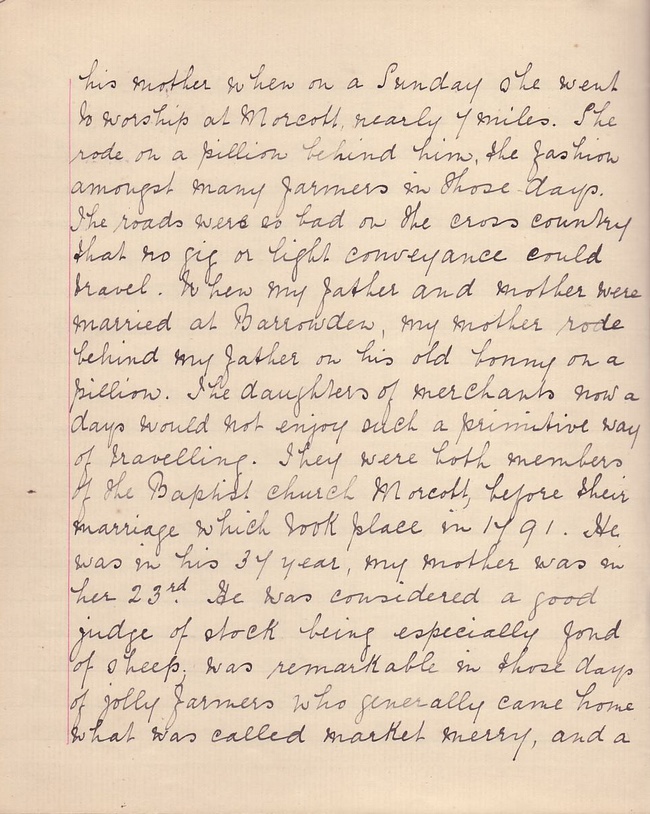 his mother when on a Sunday she went
to worship at Morcott, nearly 7 miles. She
rode on a pillion behind him, the fashion
amongst many farmers in those days.
The roads were so bad on the cross country
that no gig or light conveyance could
travel. When my father and mother were
married at Barrowden, my mother rode
behind my father on his old bonny on a
pillion. The daughters of merchants now a
days would not enjoy such a primitive way
of travelling. They were both members
of the Baptist church Morcott, before their
marriage which took place in 1791. He
was in his 37 year, my mother was in
her 23rd. He was considered a good
judge of stock being especially fond
of sheep; was remarkable in those days
of jolly farmers who generally came home
what was called market merry, and a